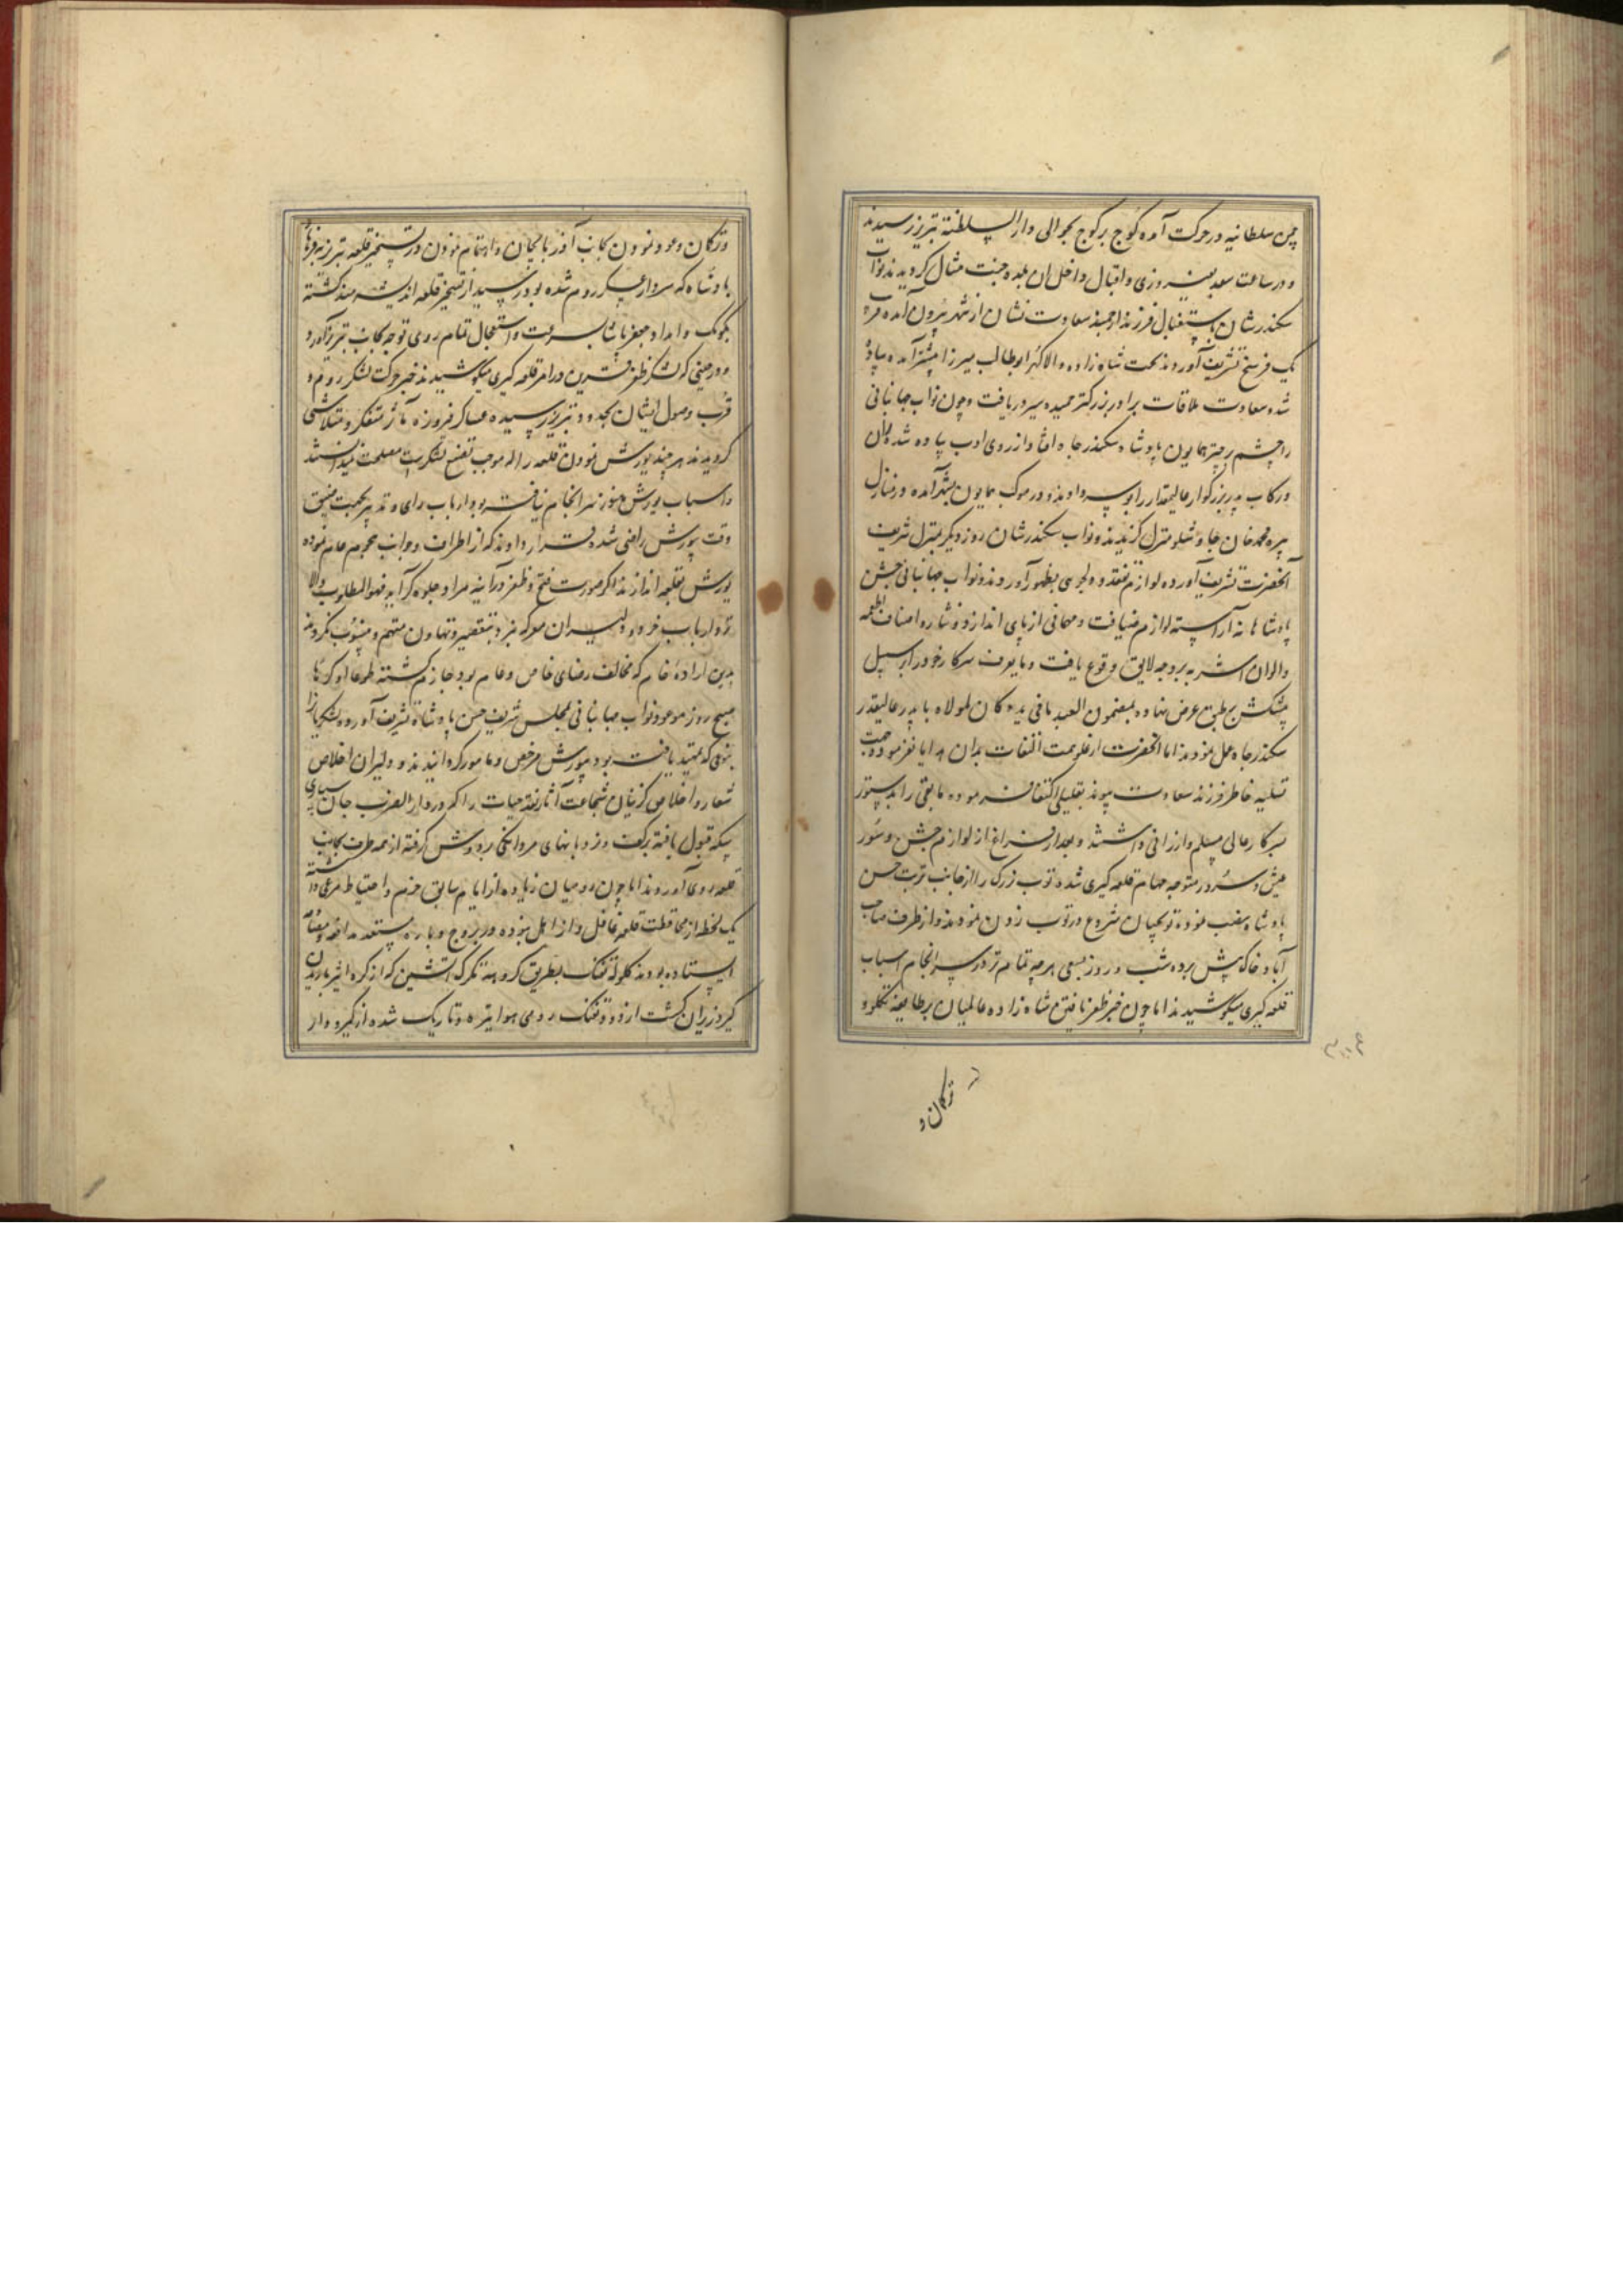 چمن سلطانیه در حرکت آمده کوچ بر کوچ بحوالی دار السلطنه تبریز رسیدند
و در ساعت سعد بفیروزی و اقبال داخل ان بلده جنت مثال کردیدند نواب
سکندرشان باستقبال فرزند ارجمند سعادت نشان از شهر بیرون آمده
یک فرسخ تشریف آوردند نخست شاه زاده والاکهر ابوطالب میرزا پیشتر آمده پیاده
شده سعادت ملاقات برادر بزرکتر حمیده سیر دریافت و چون نواب جهانبانی
را چشم بر چتر همایون پادشاه سکندر جاه افتاد از روی ادب پیاده شده
رکاب پدر بزرکوار عالیمقدار را بوسه دادند و در موکب همایون بشهر آمده در منازل
پیره محمد خان چاوشلو منزل کزیدند و نواب سکندرشان روز دیکر بمنزل شریف
آنحضرت تشریف آورده لوازم تفقد و دلجوی بظهور آوردند و نواب جهانبانی جشن
پادشاهانه آراسته لوازم ضیافت و مهمانی از پای انداز و نثار و اصناف اطعمه
و الوان اشربه بر وجه لایق وقوع یافت و ما یعرف سرکار خود را برسبیل
پیشکش بر طبق عرض نهاده بمضمون العبد و ما فی یده کان لمولاه با پدر عالیقدر
سکندر جاه عمل نمودند اما انحضرت از علو همت التفات بدان هدایا نفرموده جهت
تسلیه خاطر فرزند سعادت پیوند بقلیلی اکتفا فرموده مابقی را بدستور
بسرکار عالی مسلم و ارزانی داشتند و بعد از فراغ از لوازم جشن و سور
عیش و سرور متوجه مهام قلعه کیری شده توپ بزرک را از جانب تربت حسن
پادشاه نصب نموده توپچیان شروع در توپ زدن نمودند و از طرف صاحب
آباد خاک پیش برده شب و روز بسعی هر چه تمام تر در سرانجام اسباب
قلعه کیری میکوشیدند اما چون خبر ظفر یافتن شاه زاده عالمیان بر طایفه تکلو و
ترکمان و
و ترکمان و عود نمودن بجانب آذربایجان و اهتمام نمودن در تسخیر قلعه تبریز بفرهاد
پادشاه که سردار عسکر روم شده بود رسید از تسخیر قلعه اندیشه مند کشته
بکومک و امداد جعفر پاشا بسرعت و استعجال تمام روی توجه بجانب تبریز آورد
و در حینی که لشکر ظفر قرین در امر قلعه کیری میکوشیدند خبر حرکت لشکر روم و
قرب وصول ایشان بحدود تبریز رسیده عساکر فیروزه مآثر متفکر و متلاشی
کردیدند هر چند یورش نمودن قلعه را که موجب تضییع لشکر است مصلحت نمیدانستند
و اسباب یورش هنوز سرانجام نیافته بود ارباب رای و تدبیر بجهت ضیق
وقت بیورش راضی شده قرار دادند که از اطراف و جوانب هجوم عام نموده
یورش بقلعه اندازند اکر صورت فتح و ظفر در آینه مراد جلوه کر آید فهو المطلوب والا
نزد ارباب خرد و دلیران معرکه نبرد بتقصیر و تهاون متهم و منسوب نکردند
بدین اراده خام که مخالف رضای خاص و عام بود جازم کشته طوعا او کرها
صبح روز موعود نواب جهانبانی بمجلس شریف حسن پادشاه تشریف آورده لشکریان را
بنوعی که تمهید یافته بود بیورش مرخص و مامور کردانیدند و دلیران اخلاص
شعار و اخلاص کزینان شجاعت آثار نقد حیات را که در دار الضرب جان سپاری
سکه قبول یافته بر کف و نردبانهای مردانکی بر دوش کرفته از همه طرف بجانب
قلعه روی آوردند اما چون رومیان زیاده از ایام سابق حزم و احتیاط مرعی داشته
یک لحظه از محافظت قلعه غافل و ذاهل نبوده در بروج و باره مستعد مدافعه
ایستاده بودند کلوله تفنک بطریق تکرک آتشین که از کره اثیر بارید
کیرد ریزان کشت از دود تفنک رومی هوا تیره و تاریک شده از کیر و دار